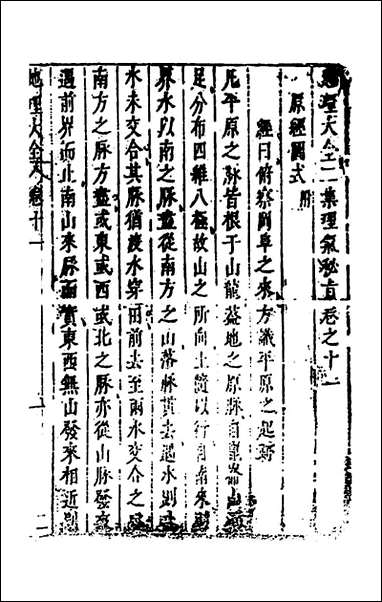 地理大全二集理氣秘旨卷之十一
原經圖式 附
經曰俯察剛卓之來方識平原之起斷
凡平原之脉皆根于山龍葢地之原脉自龍
足分布四維八極故山之所向土隨以行自南來
界水以南之脉盡從南方之山落脉黃去遇水則
水未交合其脉猶渡水穿田前去至兩水交合之
南方之脉方盡或東或西或北之脉亦從山脉發來
遇前界而止南山來脉而實東西無山發來相近則
地理大全 卷十一 一 二